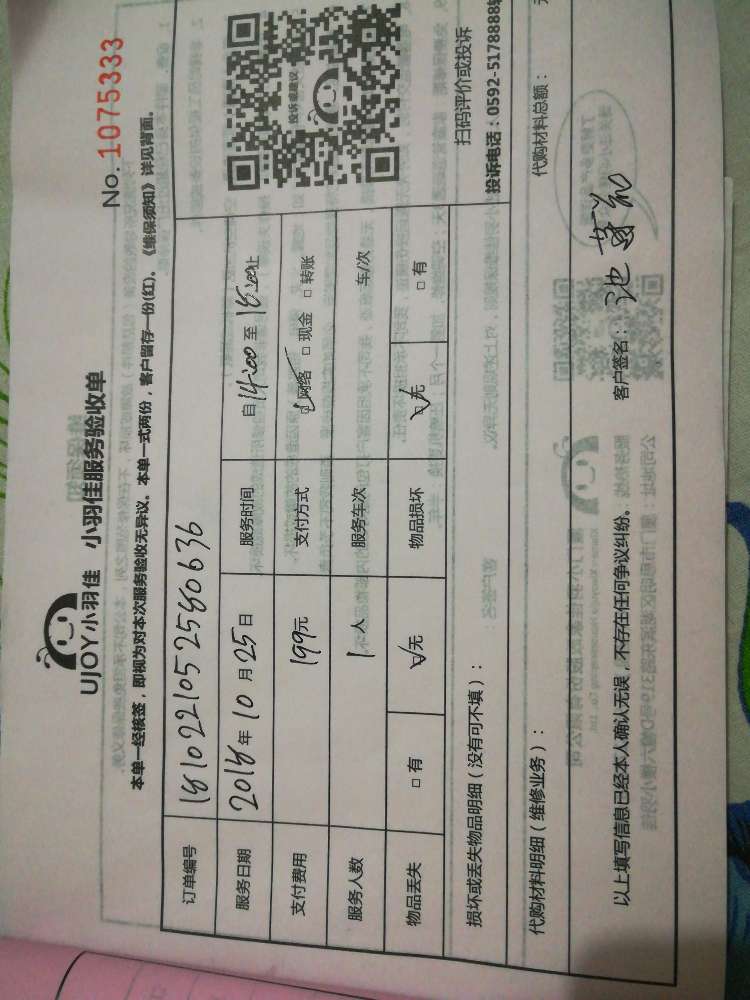 No. 1075333
UJOY小羽佳 小羽佳服务验收单
本单一经核签，即视为对本次服务验收无异议。本单一式两份，客户留存一份(红)。《维保须知》详见背面。
订单编号 1810221052580636
服务日期 2018年10月25日 服务时间 自14:00至18:00止
支付费用 199元 支付方式 ☑网络 □现金 □转账
服务人数 1人 服务车次 车/次
物品丢失 □有 ☑无 物品损坏 ☑无 □有
投诉或建议
扫码评价或投诉
投诉电话：0592-5178888转
损坏或丢失物品明细（没有可不填）：
代购材料明细（维修业务）： 代购材料总额：
以上填写信息已经本人确认无误，不存在任何争议纠纷。 客户签名：池